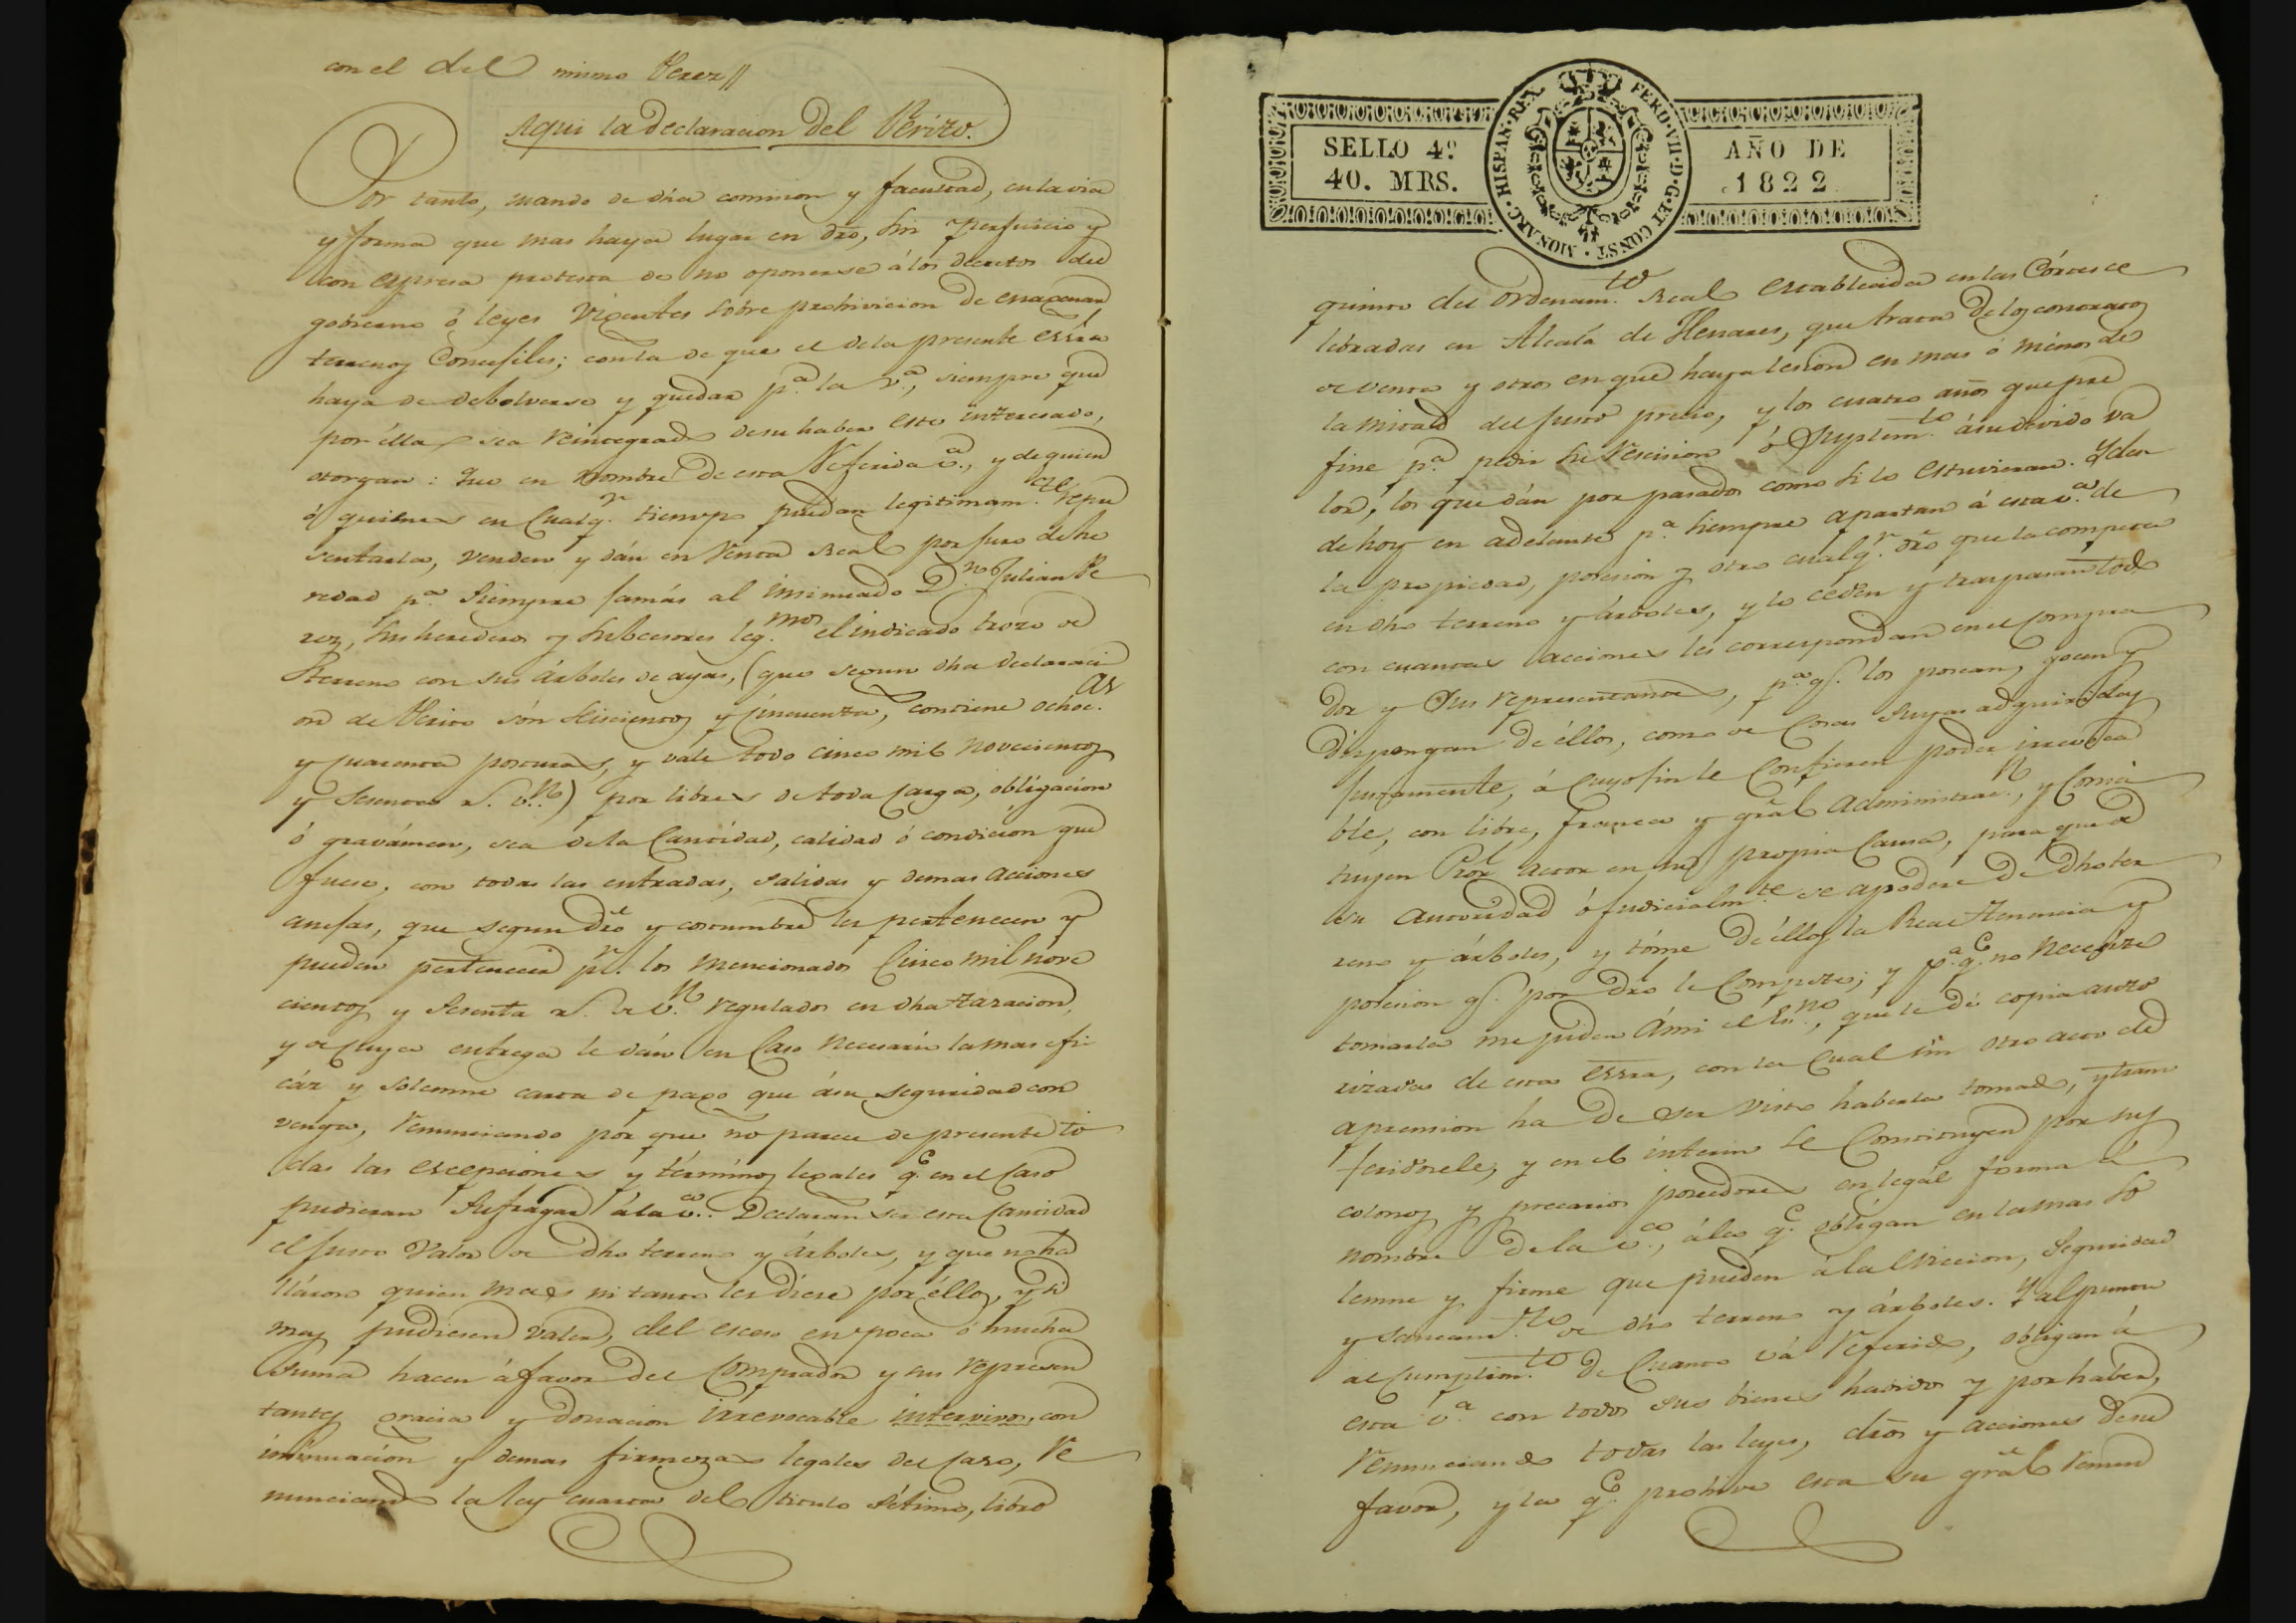 con el del mismo Perez //
Aqui la declaracion del Perito.
Por tanto, usando de dha comision y facultad, en la via
y forma que mas haya lugar en dro, sin perjuicio y
con expresa protesta de no oponerse á los decretos del
gobierno ó leyes vigentes sobre prohivicion de enagenar
terrenos Concejiles; con la de que el de la presente essra
haya de debolverse y quedar p.ª la v.ª, siempre que
por élla sea reintegrado de su haber este interesado,
otorgan: Que en nombre de esta referida v.ª, y de quien
ó quienes en cualq.r tiempo puedan legitimam.te repre
sentarla, venden y dán en venta Real por juro de he
redad p.ª siempre jamás al insinuado D.n Julian Pe
rez, sus herederos y subcesores leg.mos el indicado trozo de
terreno con sus árboles de ayas, (que segun dha declaraci
on de Perito són seiscientos y cincuenta, contiene ochoc.as
y cuarenta posturas, y vale todo cinco mil novecientos
y sesenta r.s v.n) por libres de toda carga, obligacion
ó gravámen, sea de la cantidad, calidad ó condicion que
fuese, con todas las entradas, salidas y demas acciones
anejas, que segun dró y costumbre les pertenecen y
pueden pertenecer p.r los mencionados cinco mil nove
cientos y sesenta r.s de v.n regulados en dha tasacion,
y de cuya entrega le dán en caso necesario la mas efi
cáz y solemne carta de pago que á su seguridad con
venga, renunciando por que no parece de presente to
das las escepciones y términos legales q.e en el caso
pudieran sufragar á la v.ª. Declaran ser esta cantidad
el justo valor de dho terreno y árboles, y que no ha
lláron quien mas ni tanto les diese por éllos, y si
mas pudiesen valer, del esceso en poca ó mucha
suma hacen á favor del comprador y sus represen
tantes gracia y donacion irrevocable intervivos, con
insinuacion y demas firmezas legales del caso, re
nunciando la ley cuarta del titulo sétimo, libro
SELLO 4º
40. MRS.
HISPAN·REX FERD·VII·D·G·ET CONST·MONARC·
AÑO DE
1822
quinto del ordenam.to Real establecida en las Córtes ce
lebradas en Alcalá de Henares, que trata de los contratos
de venta y otros en que haya lesion en mas ó ménos de
la mitad del justo precio, y los cuatro años que pre
fine p.ª pedir su rescision ó suplem.to á su devido va
lor, los que dán por pasados como si lo estuvieran. Y des
de hoy en adelante p.ª siempre apartan á esta v.ª de
la propiedad, posesion y otro cualq.r dró que la competa
en dho terreno y árboles, y lo céden y traspasan todo
con cuantas acciones les correspondan en el compra
dor y sus representantes, p.ª q.e los posean, gocen y
dispongan de éllos, como de cosas suyas adquiridas
justamente, á cuyo fin le confieren poder irrevoca
ble, con libre, franca y grâl administrac.n, y consti
tuyen Prôr actor en su propia causa, para que de
su autoridad ó judicialm.te se apodere de dho ter
reno y árboles, y tóme de éllos la Real tenencia y
posesion q.e por dró le compete; y p.ª q.e no necesite
tomarla me piden á mi el Es.no, que le dé copia auto
rizada de esta essra, con la cual sin otro acto de
aprension ha de ser visto haberla tomado, y trans
feridosele; y en el interin se constituyen por sus
colonos y precarios poseedores en legál forma á
nombre de la v.ª, á la q.e obligan en la mas so
lemne y firme que pueden á la eviccion, seguridad
y saneam.to de dho terreno y árboles. Y al puntu
al cumplim.to de cuanto vá referido, obligan á
esta v.ª con todos sus bienes havidos y por haber,
renunciando todas las leyes, dros y acciones de su
favor, y la q.e prohive esta su grâl renun